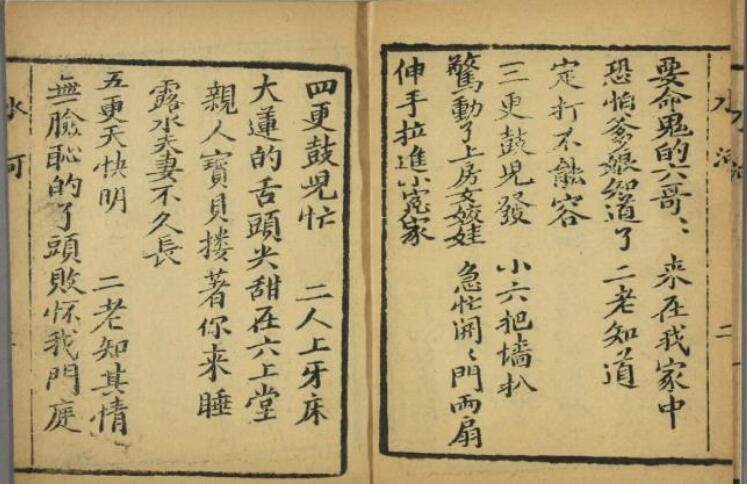 二
要命鬼的六哥〻 来在我家中
恐怕爹娘知道了 二老知道
定打不能容
三更鼓児發 小六把墙扒
驚動了上房女姣娃 急忙開〻門两扇
伸手拉進小冤家
四更鼓児忙 二人上牙床
大蓮的舌頭尖甜在六上堂
親人寳貝搂著你来睡
露水夫妻不久長
五更天快明 二老知其情
無臉恥的了頭敗怀我門庭